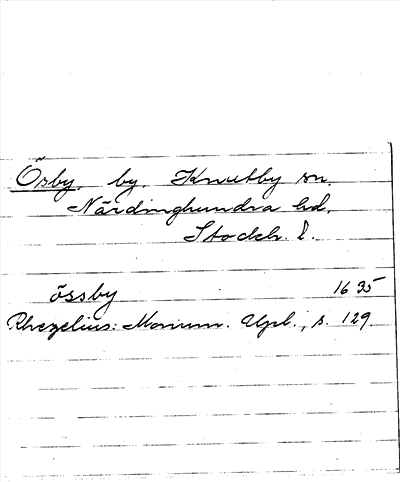 Ösby, by, Knutby sn.
Närdinghundra hd.
Stockh. l.
össby 1635
Rhezelius: Monum. Upl., s. 129